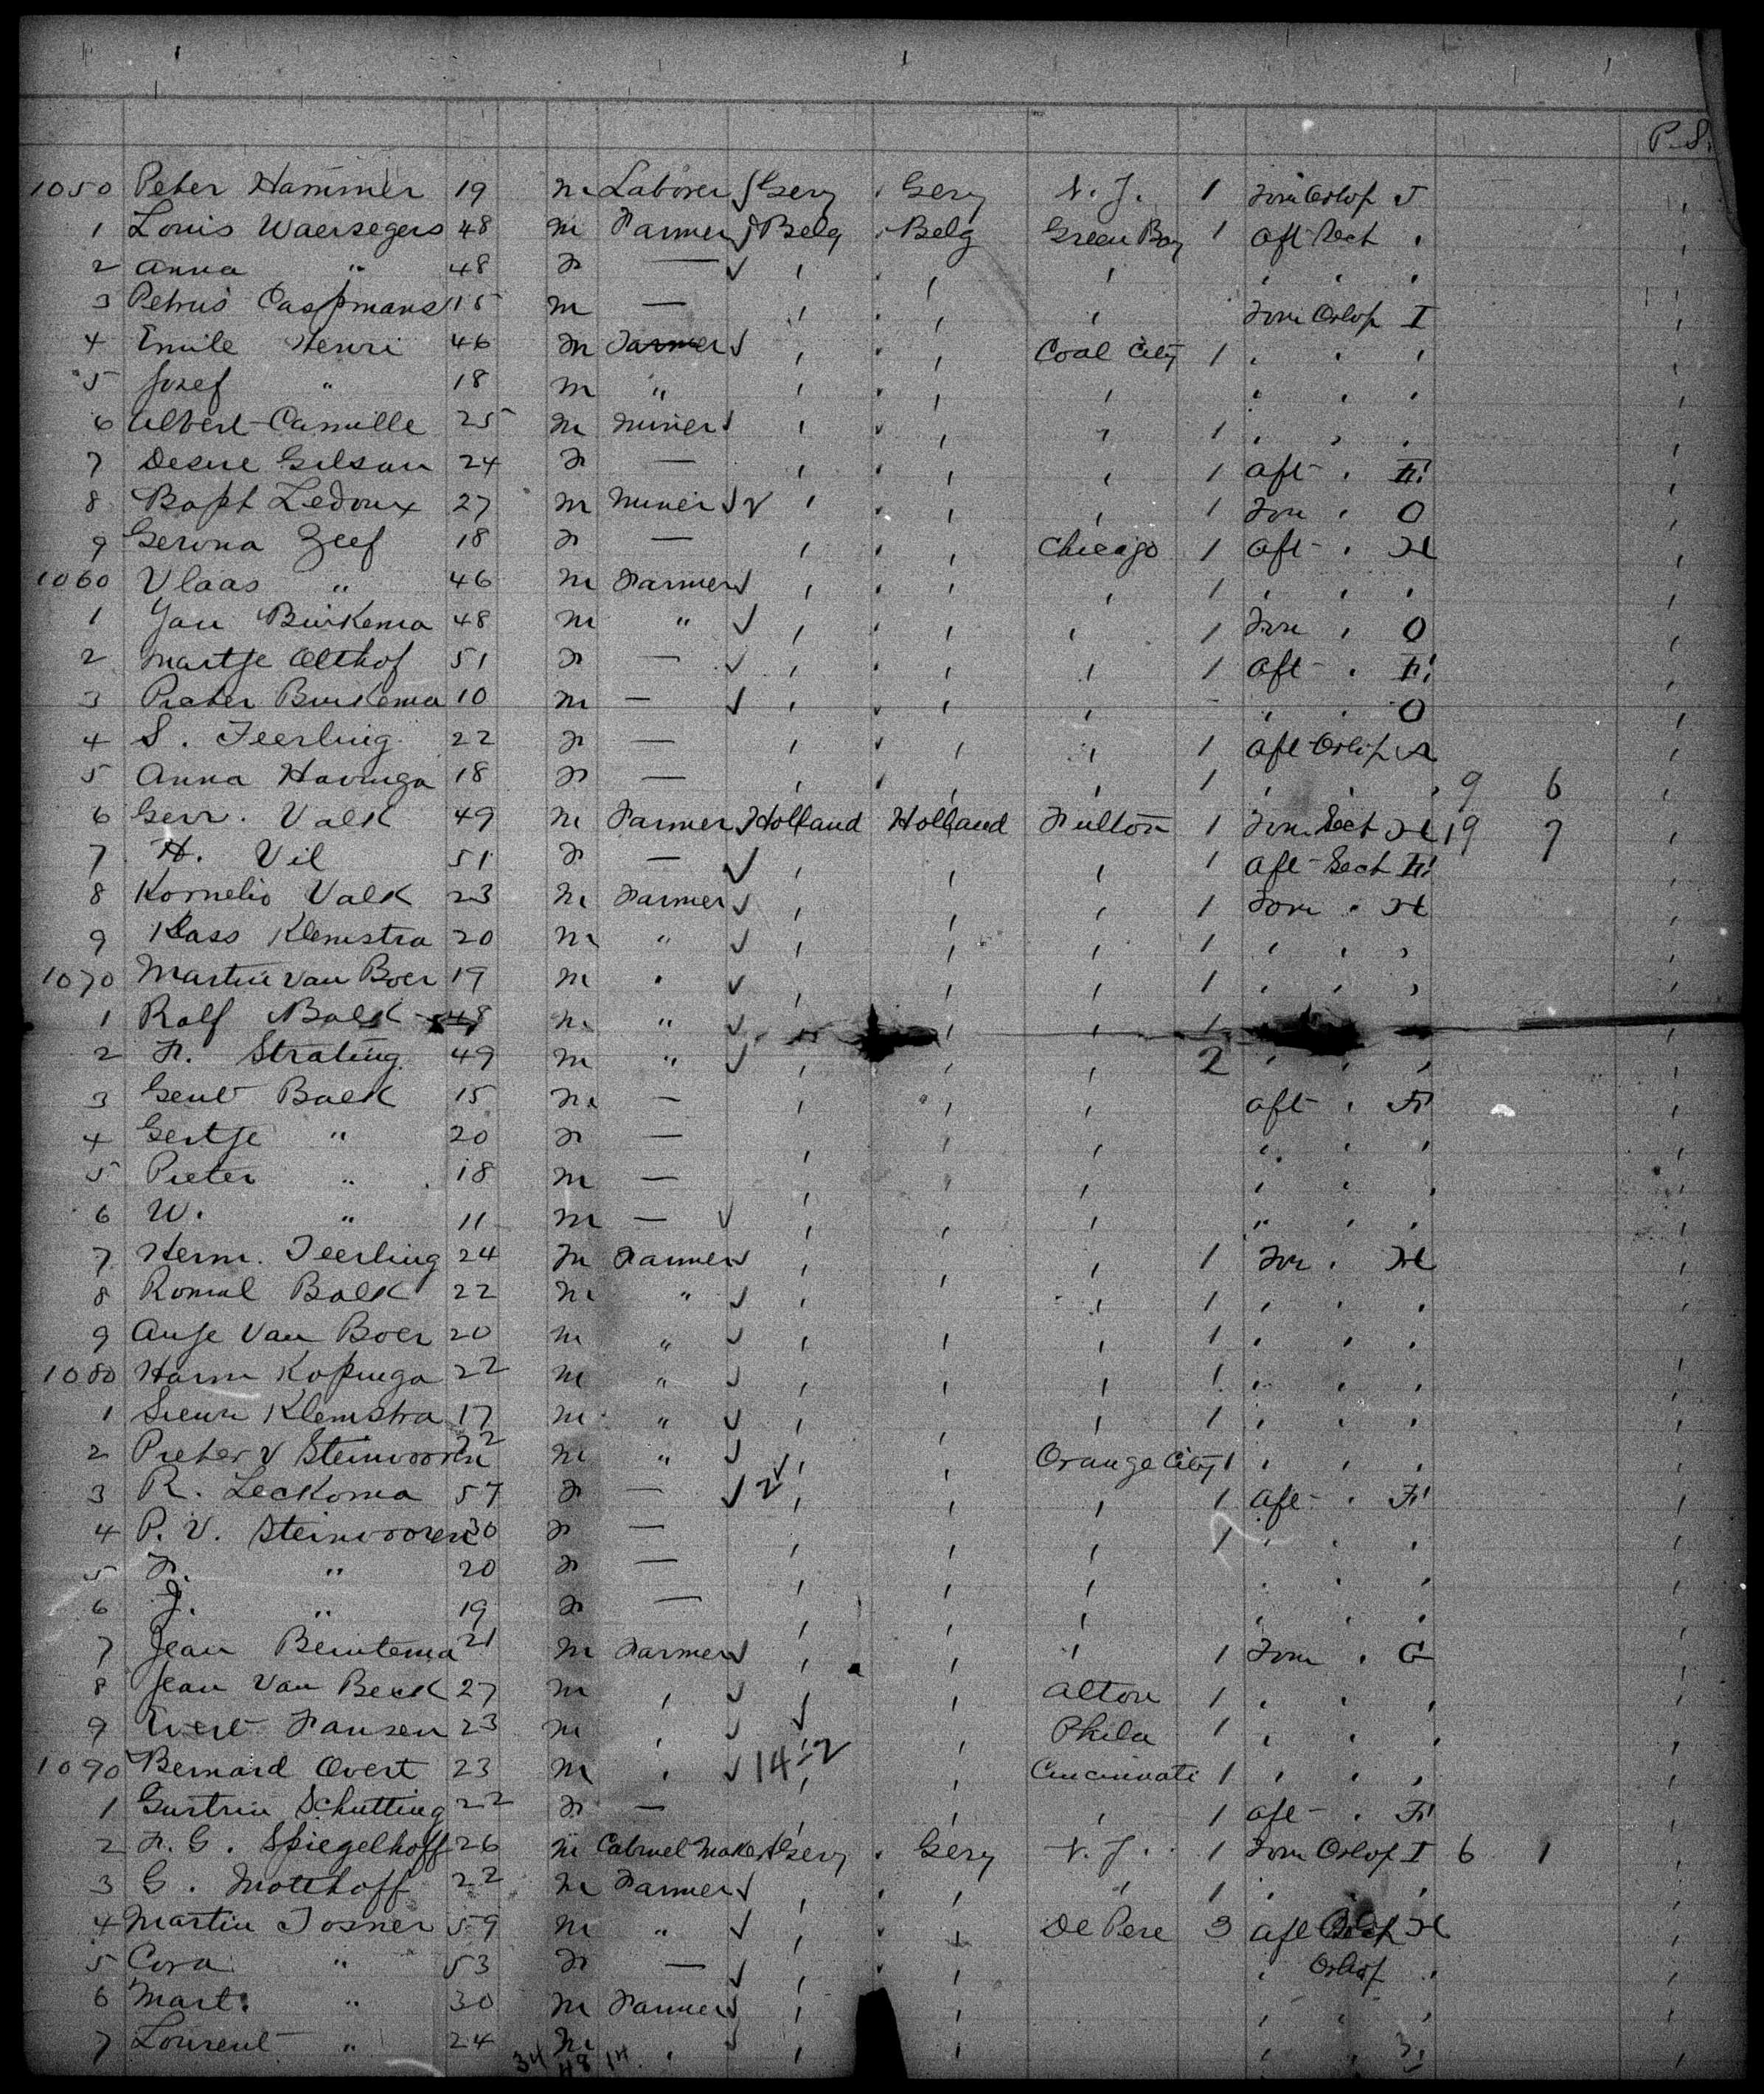 P.S.
1050 Peter Hammer 19 m Laborer √ Gery " Gery N.J. 1 Forw Orlop F
1 Louis Waersegers 48 m Farmer √ Belg " Belg Green Bay 1 aft Sect "
2 Anna " 48 F — √ " " " " " " "
3 Petrus Caspmans 15 m — " " " " Forw Orlop I
4 Emile Henri 46 m Farmer √ " " " Coal City 1 " " "
5 Josef " 18 m " " " " " " " "
6 Albert Camille 25 m miner √ " " " " 1 " " "
7 Desire Gilson 24 F — " " " " 1 aft " F
8 Bapt Ledoux 27 m miner √ 2 " " " " 1 Forw " O
9 Gerona Zeef 18 F — " " " Chicago 1 aft " H
1060 Vlaas " 46 m Farmer √ " " " " 1 " " "
1 Jan Buikema 48 m " √ " " " " 1 Forw " O
2 Martje Olthof 51 F — √ " " " " 1 aft " F
3 Pieter Buikema 10 m — √ " " " " " " O
4 S. Feerling 22 F — " " " " 1 aft Orlop
5 Anna Havinga 18 F — " " " " 1 " " " 9 6
6 Gerr. Valk 49 m Farmer √ Holland Holland Fulton 1 Forw Sect H 19 7
7 H. Vil 51 F — √ " " " 1 aft Sect F
8 Kornelis Valk 23 m Farmer √ " " " 1 Forw " H
9 Klass Klemstra 20 m " √ " " " 1 " " "
1070 Martin Van Boer 19 m " √ " " " 1 " " "
1 Ralf Balk 48 m " √ " " 1
2 F. Strating 49 m " √ " " " 2 " " "
3 Geut Balk 15 m — " " " aft " F
4 Gertje " 20 F — " " " " " "
5 Pieter " 18 m — " " " " " "
6 W. " 11 m — √ " " " " " "
7 Herm. Feerling 24 m Farmer √ " " " 1 Forw " H
8 Romul Balk 22 m " √ " " 1 " " "
9 Anje Van Boer 20 m " √ " " " 1 " " "
1080 Harm Kopinga 22 m " √ " " " 1 " " "
1 Sieun Klemstra 17 m " √ " " " 1 " " "
2 Pieter v Steinvooren 22 m " √ " " Orange City 1 " " "
3 R. Leckoma 57 F — √ 2 √ " " " 1 aft " F
4 P. V. Steinvooren 30 F — " " " 1 " " "
5 F. " 20 F — " " " " " "
6 J. " 19 F — " " " " " "
7 Jean Beintema 21 m Farmer √ " " " 1 Forw " G
8 Jean Van Beek 27 m " √ " " Alton 1 " " "
9 Evert Fansen 23 m " √ " " Phila 1 " " "
1090 Bernard Overt 23 m " √ 14 2 " " Cincinnati 1 " " "
1 Gustrin Schutting 22 F — " " " 1 aft " F
2 F. G. Spiegelhoff 26 m Cabinet Maker √ Gery " Gery N.J. 1 Forw Orlop I 6 1
3 G. Motthoff 22 m Farmer √ " " " " 1 " " "
4 Martin Josner 59 m " √ " " " De Pere 3 aft Orlop H
5 Cora " 53 F — √ " " " " Orlop "
6 Mart. " 30 m Farmer √ " " " " "
7 Lourent " 24 m " √ " " " "
34 48 14